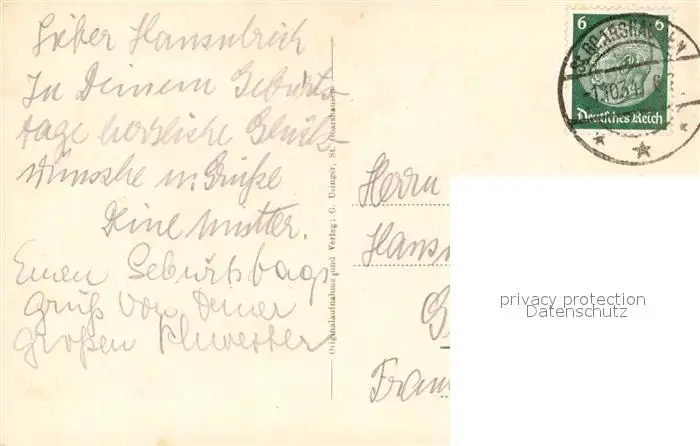 Lieber Hansulrich
Zu Deinem Geburts-
tage herzliche Glück-
wünsche u. Grüße
Deine Mutter.
Einen Geburtstags
gruß von deiner
großen Schwester
Originalaufnahme und Verlag: G. Usinger, St. Goarshausen
6 6
Deutsches Reich
ST. GOARSHAUSEN
Herrn
Hansu
G
Fran
privacy protection
Datenschutz